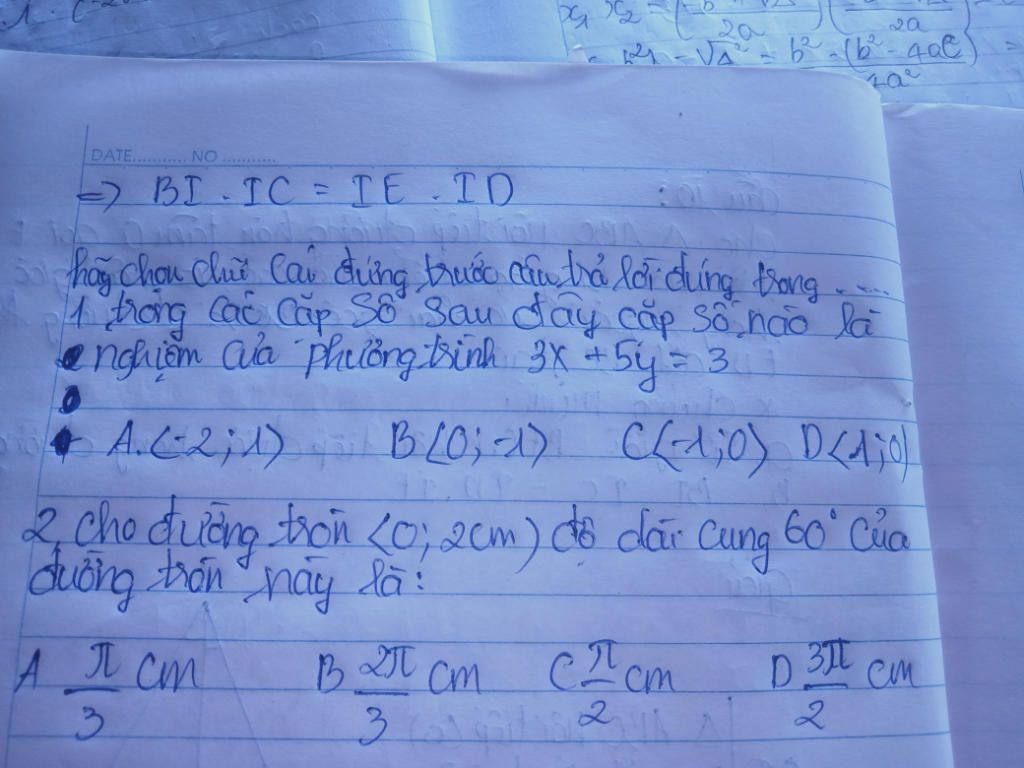 x₁ x₂ =
2a
2a
= b² - (b² - 4ac) =
4a²
DATE........... NO ...........
=> BI . IC = IE . ID
hãy chọn chữ cái đứng trước câu trả lời đúng trong .....
1, trong các cặp số sau đây cặp số nào là
nghiệm của phương trình 3x + 5y = 3
A. (-2; 1) B (0; -1) C (-1; 0) D (1; 0)
2, cho đường tròn (0; 2cm) độ dài cung 60° của
đường tròn này là:
A π/3 cm B 2π/3 cm C π/2 cm D 3π/2 cm